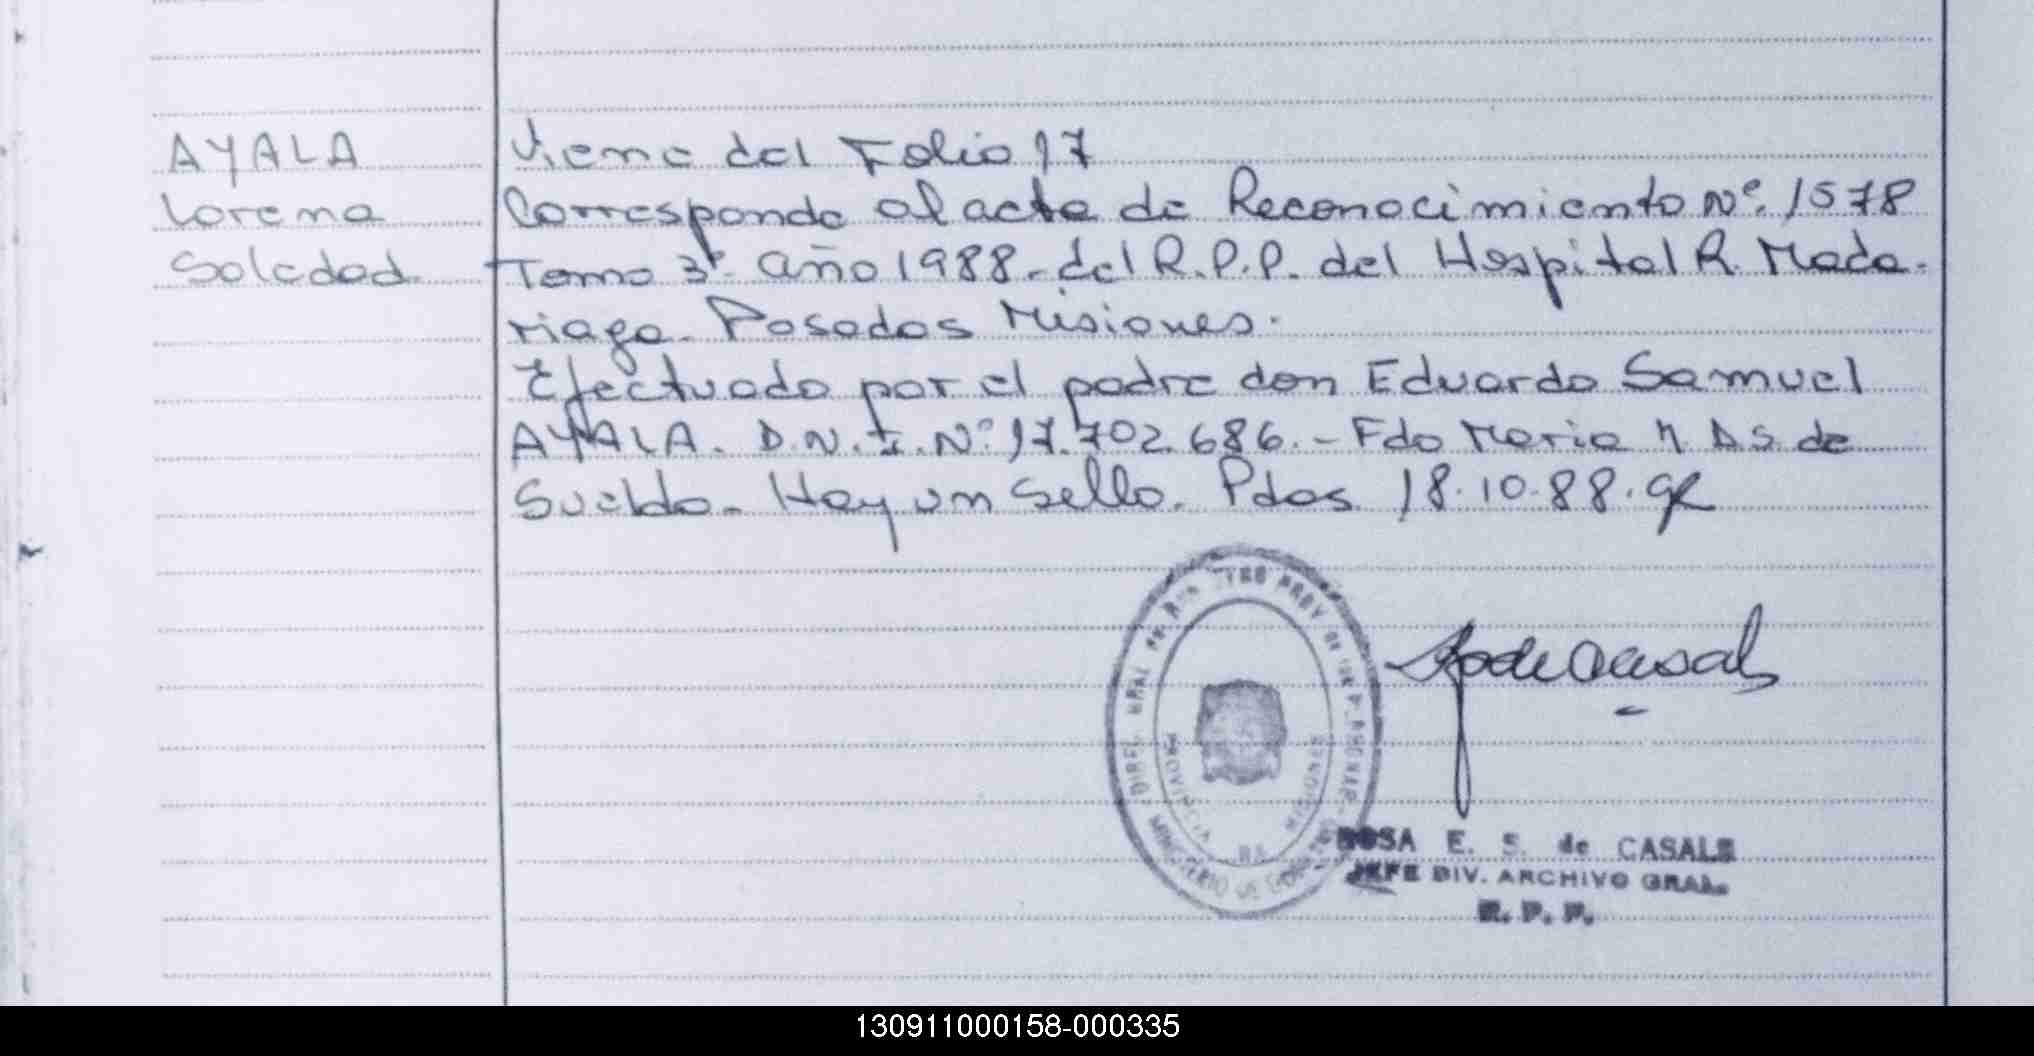 AYALA
Lorena
Soledad
Viene del Folio 17
Corresponde al acta de Reconocimiento Nº. 1578
Tomo 3º. año 1988. del R.P.P. del Hospital R. Mada-
riaga. Posadas Misiones.
Efectuado por el padre don Eduardo Samuel
AYALA. D.N.I. Nº. 17.702.686.- Fdo Maria N. D.S. de
Sueldo. Hay un sello. Pdas 18.10.88.
PROVINCIA DE MISIONES
ROSA E. S. de CASALS
JEFE DIV. ARCHIVO GRAL.
R. P. P.
130911000158-000335